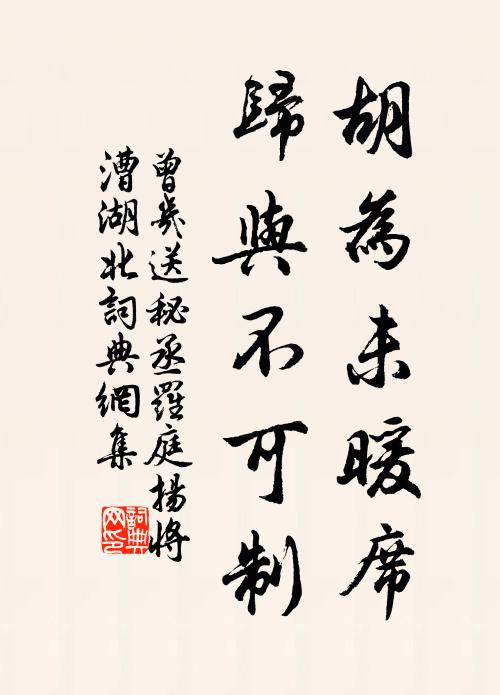 胡為未暖席
歸與不可制
曾幾送秘丞羅庭揚將
漕湖北詞典網集
詞典网印